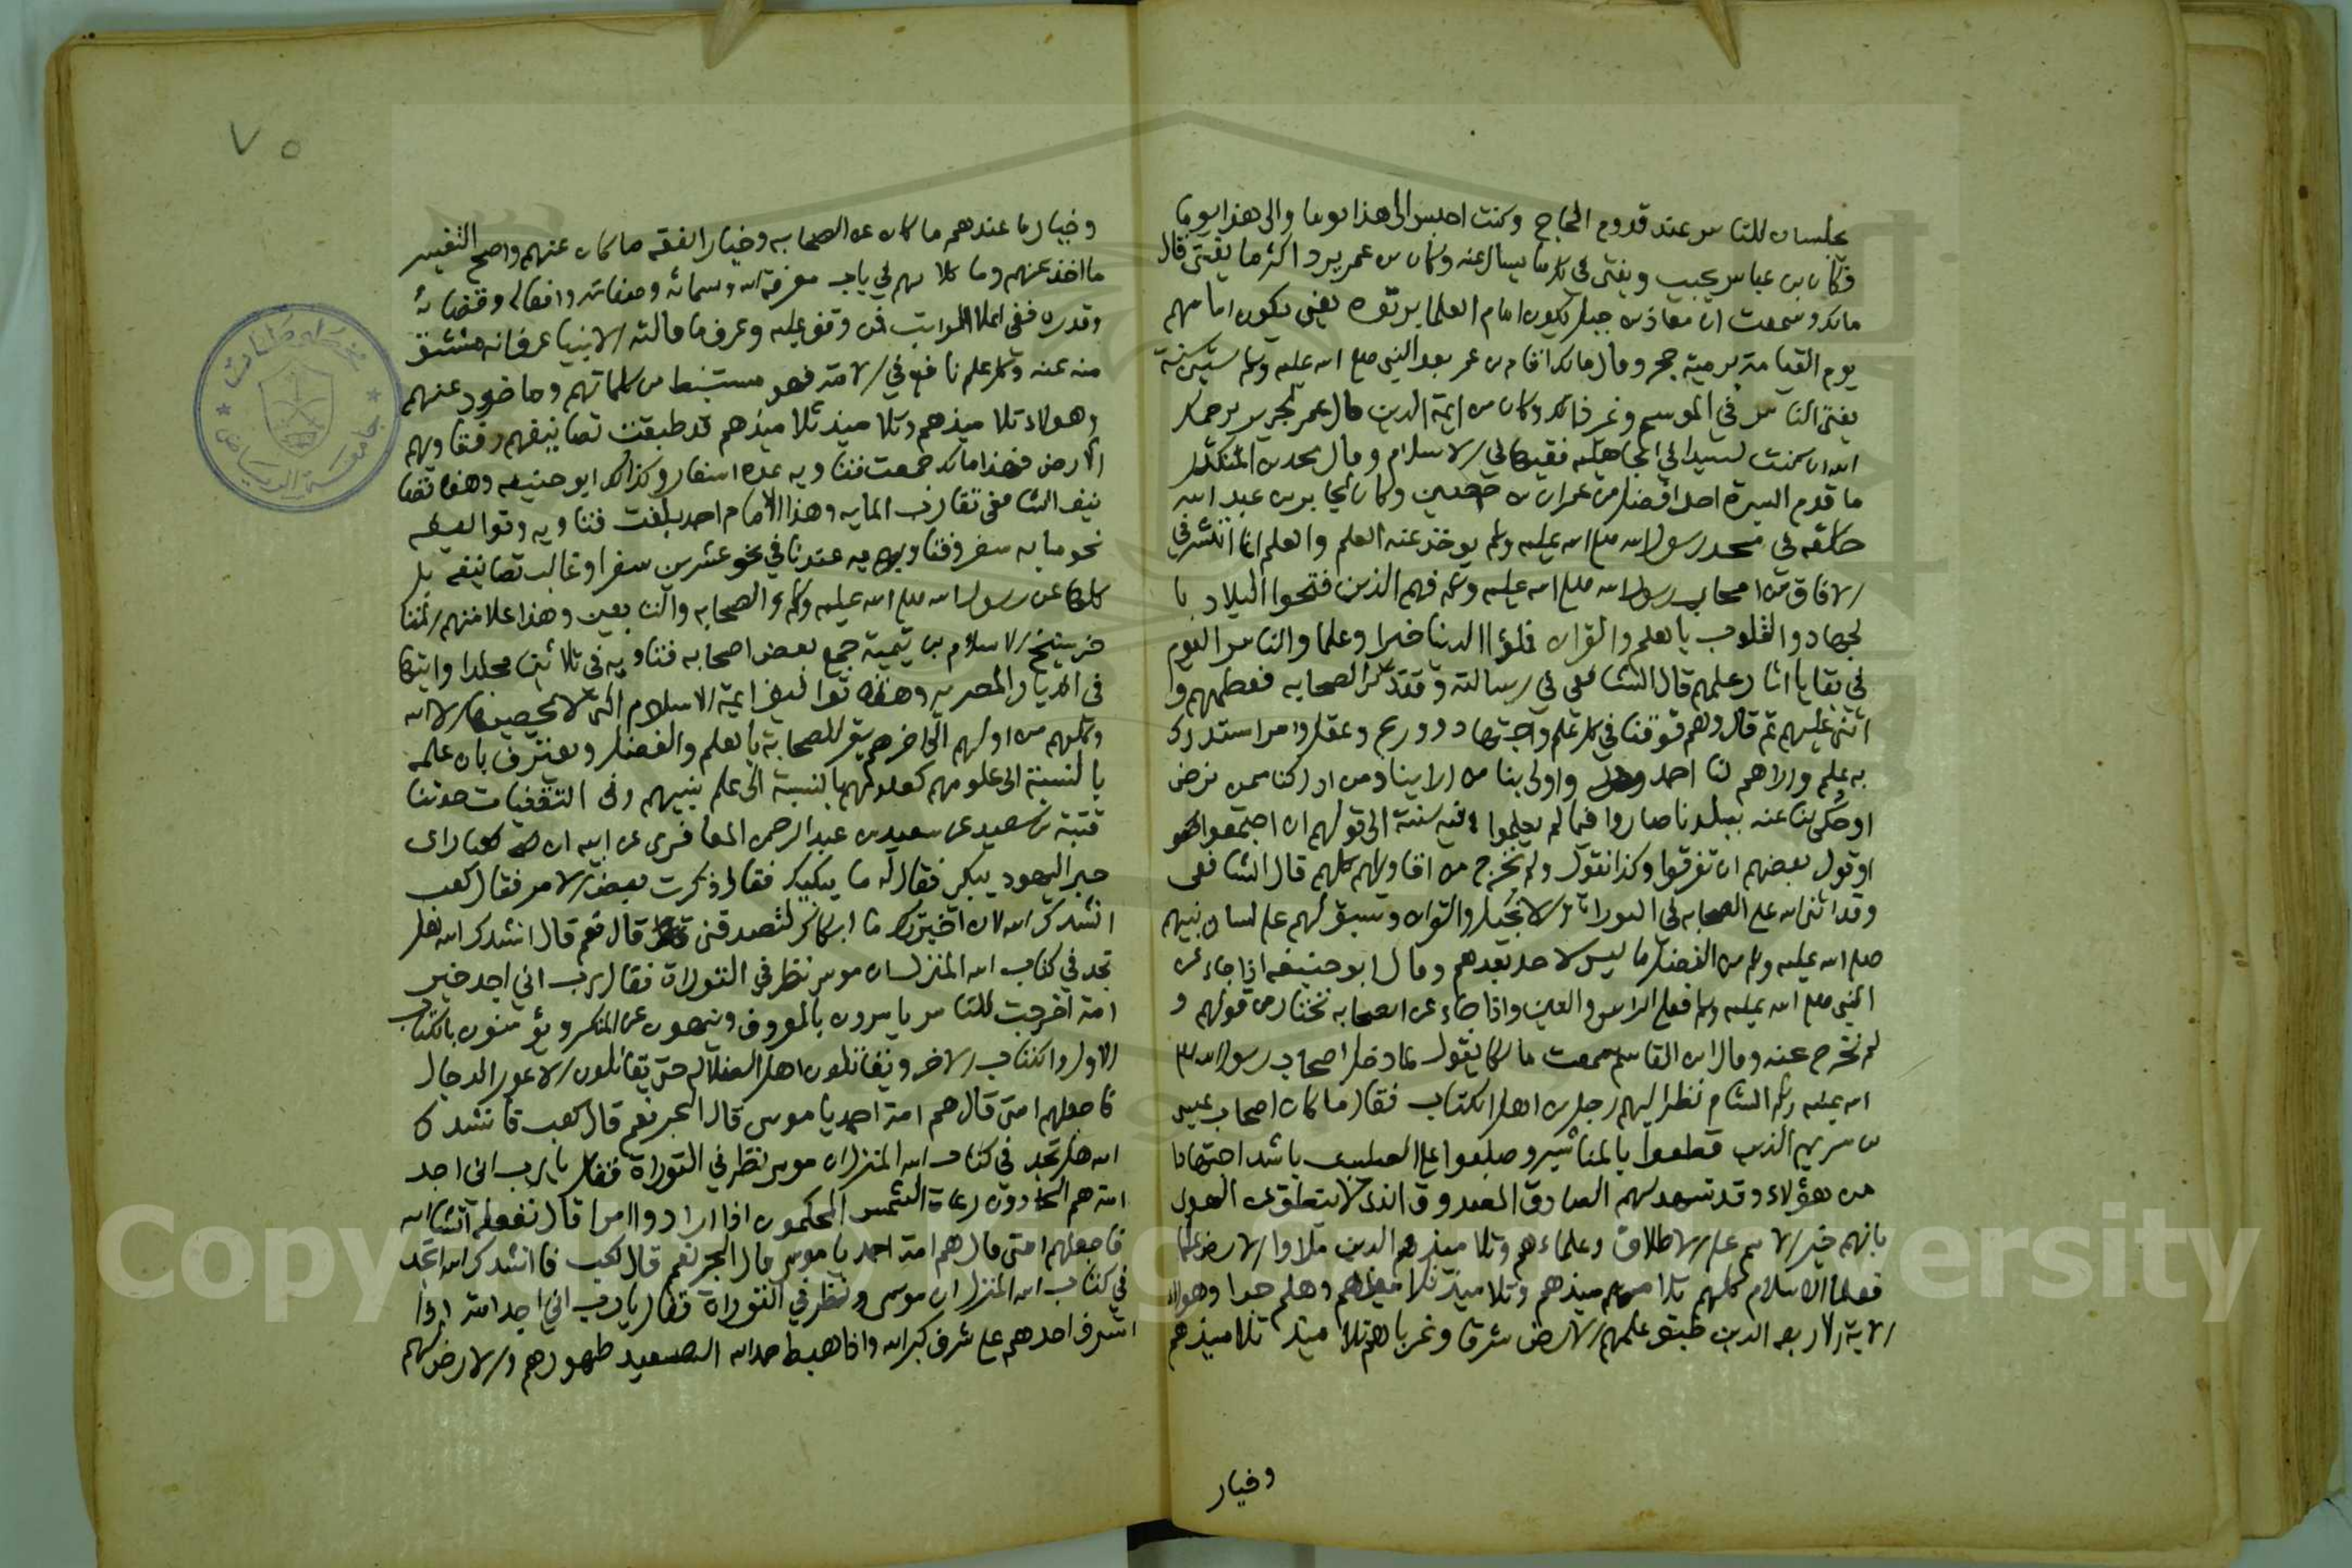 يجلسان للناس عند قدوم الحاج وكنت اجلس الى هذا يوما والى هذا يوما
فكان بن عباس يجيب ويفتى في كل ما يسال عنه وكان بن عمر يرد اكثر ما يفتى قال
مالك وسمعت ان معاذ بن جبل يكون امام العلما برتوه يعنى يكون امامهم
يوم القيامة برمية حجر وقال مالك اقام بن عمر بعد النبي صلع الله عليه وسلم ستين سنة
يفتى الناس في الموسم وغير ذالك وكان من ايمة الدين قال عمر لجرير يرحمك
الله ان كنت لسيدا في الجاهلية فقيها في الاسلام وقال محمد بن المنكدر
ما قدم البصرة احد افضل من عمران بن حصين وكان لجابر بن عبد الله
حلقه في مسجد رسول الله صلع الله عليه وسلم يوخذ عنه العلم والعلم انما انتشر في
الافاق من اصحاب رسول الله صلع الله عليه وسلم فهم الذين فتحوا البلاد با
لجهاد والقلوب بالعلم والقران فملؤا الدنيا خيرا وعلما والناس اليوم
في بقايا اثار علمهم قال الشافعي في رسالته وقد ذكر الصحابه فعظمهم و
اثنى عليهم ثم قال وهم فوقنا في كل علم واجتهاد وورع وعقل وامر استدرك
به علم واراهم لنا احمد واولى بنا من ارائنا ومن ادركنا ممن نرضى
او حكى بنا عنه ببلدنا صاروا فيما لم يعلموا فيه سنة الى قولهم ان اجتمعوا
او قول بعضهم ان تفرقوا وكذا نقول ولم نخرج من اقاويلهم كلهم قال الشافعى
وقد اثنى الله على الصحابه في التوراة والانجيل والقران وسبق لهم على لسان نبيهم
صلع الله عليه وسلم من الفضل ما ليس لاحد بعدهم وقال ابو حنيفه اذا جاء عن
النبي صلع الله عليه وسلم فعلى الراس والعين واذا جاء عن الصحابه نختار من قولهم و
لم نخرج عنه وقال ابن القاسم سمعت مالكا يقول لما دخل اصحاب رسول الله صلع
الله عليه وسلم الشام نظر اليهم رجل من اهل الكتاب فقال ما كان اصحاب عيسى
بن مريم الذين قطعوا بالمناشير وصلبوا على الصليب باشد اجتهادا
من هؤلاء وقد شهد لهم الصادق المصدوق الذى لا ينطق عن الهوى
بانهم خير الامم على الاطلاق وعلماءهم وتلاميذهم الذين ملاوا الارض علما
فعلما الاسلام كلهم تلاميذهم وتلاميذ تلاميذهم وهلم جرا وهولاء
الايمة الاربعه الذين طبق علمهم الارض شرقا وغربا هم تلاميذ تلاميذهم
وخيار
٧٥
وخيار ما عندهم ما كان عن الصحابه وخيار الفقه ما كان عنهم واصح التفسير
ما اخذ عنهم وما كلامهم في باب معرفة الله واسمائه وصفاته وافعاله وقضائه
وقدره ففى اعلا المراتب فمن وقف عليه وعرف ما قالته الانبيا عرف انه مشتق
منه عنه وكل علم نافع في الامة فهو مستنبط من كلماتهم وماخوذ عنهم
وهولاء تلاميذهم وتلاميذ تلاميذهم قد طبقت تصانيفهم وفتاويهم
الارض فهذا مالك جمعت فتاويه عدة اسفار وكذالك ابو حنيفه وهذا تصا
نيف الشافعى تقارب المايه وهذا الامام احمد بلغت فتاويه وتواليفه
نحو مايه سفر وفتاويه عندنا في نحو عشرين سفرا وغالب تصانيفه بل
كلها عن رسول الله صلع الله عليه وسلم والصحابه والتابعين وهذا علامتهم المتا
خر شيخ الاسلام بن تيمية جمع بعض اصحابه فتاويه في ثلاثين مجلدا وايتها
في الديار المصريه وهذه تواليف ايمة الاسلام التى لا يحصيها الا الله
وكلهم من اولهم الى اخرهم يقر للصحابة بالعلم والفضل ويعترف بان علمه
بالنسبة الى علومهم كعلومهم بالنسبة الى علم نبيهم وفى الثقفيات حدثنا
قتيبة بن سعيد عن سعيد بن عبد الرحمن المعافرى عن ابيه ان كعبا راى
حبر اليهود يبكى فقال له ما يبكيك فقال ذكرت بعض الامر فقال كعب
انشدك الله لان اخبرتك ما ابكاك لتصدقنى قال نعم قال انشدك الله هل
تجد في كتاب الله المنزل ان موسى نظر في التوراة فقال رب اني اجد خير
امة اخرجت للناس يامرون بالمعروف وينهون عن المنكر ويؤمنون بالكتاب
الاول والكتاب الاخر ويقاتلون اهل الضلاله حتى يقاتلون الاعور الدجال
فاجعلهم امتى قال هم امة احمد يا موسى قال الحبر نعم قال كعب فانشدك
الله هل تجد في كتاب الله المنزل ان موسى نظر في التوراة فقال يا رب انى اجد
امة هم الحمادون رعاة الشمس المحكمون اذا ارادوا امرا قال نفعله انشا الله
فاجعلهم امتى قال هم امة احمد يا موسى قال الحبر نعم قال كعب فانشدك الله اتجد
في كتاب الله المنزل ان موسى نظر في التوراة فقال يا رب انى اجد امة اذا
اشرف احدهم على شرف كبر الله واذا هبط حمد الله الصعيد طهورهم والارض لهم
جامعة الرياض
Copyright © King Saud University